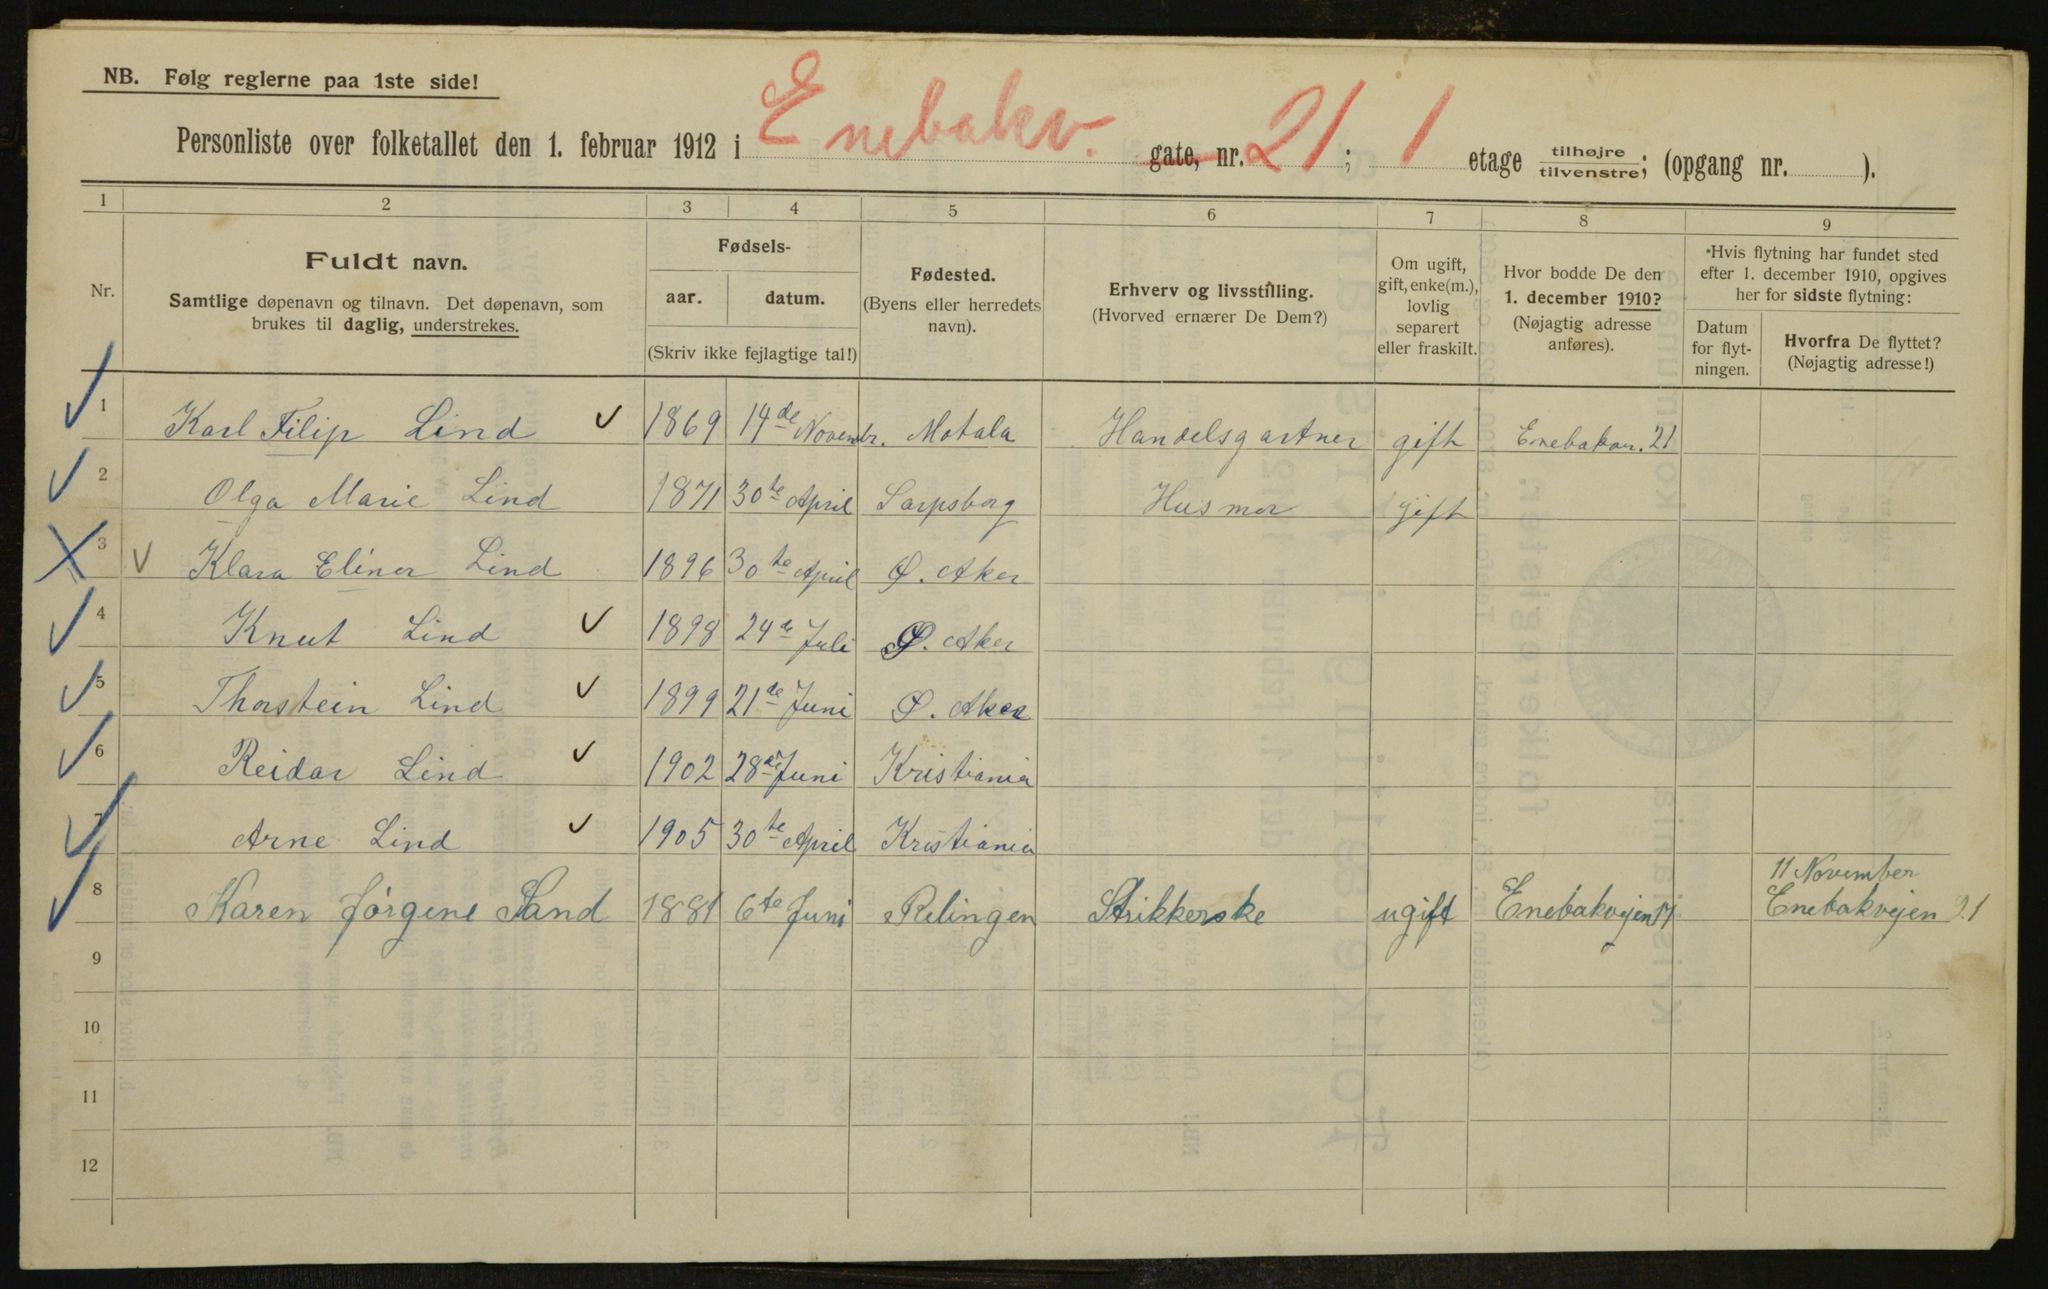 NB. Følg reglerne paa 1ste side!
Personliste over folketallet den 1. februar 1912 i Enebakv. gate, nr. 21; 1 etage tilhøjre/tilvenstre; (opgang nr. ).
1 2 3 4 5 6 7 8 9
Nr.
Fuldt navn.
Samtlige døpenavn og tilnavn. Det døpenavn, som
brukes til daglig, understrekes.
Fødsels-
aar. datum.
(Skriv ikke fejlagtige tal!)
Fødested.
(Byens eller herredets
navn).
Erhverv og livsstilling.
(Hvorved ernærer De Dem?)
Om ugift,
gift, enke(m.),
lovlig
separert
eller fraskilt.
Hvor bodde De den
1. december 1910?
(Nøjagtig adresse
anføres).
*Hvis flytning har fundet sted
efter 1. december 1910, opgives
her for sidste flytning:
Datum
for flyt-
ningen.
Hvorfra De flyttet?
(Nøjagtig adresse!)
1 Karl Filip Lind 1869 14de Novembr. Motala Handelsgartner gift Enebakv. 21
2 Olga Marie Lind 1871 30te April Sarpsborg Husmor gift
3 Klara Elinor Lind 1896 30te April Ø. Aker
4 Knut Lind 1898 24de Juli Ø. Aker
5 Thorstein Lind 1899 21de Juni Ø. Aker
6 Reidar Lind 1902 28de Juni Kristiania
7 Arne Lind 1905 30te April Kristiania
11 November
8 Karen Jørgene Sand 1881 6te Juni Relingen Strikkerske ugift Enebakvejen Enebakvejen 21
9
10
11
12